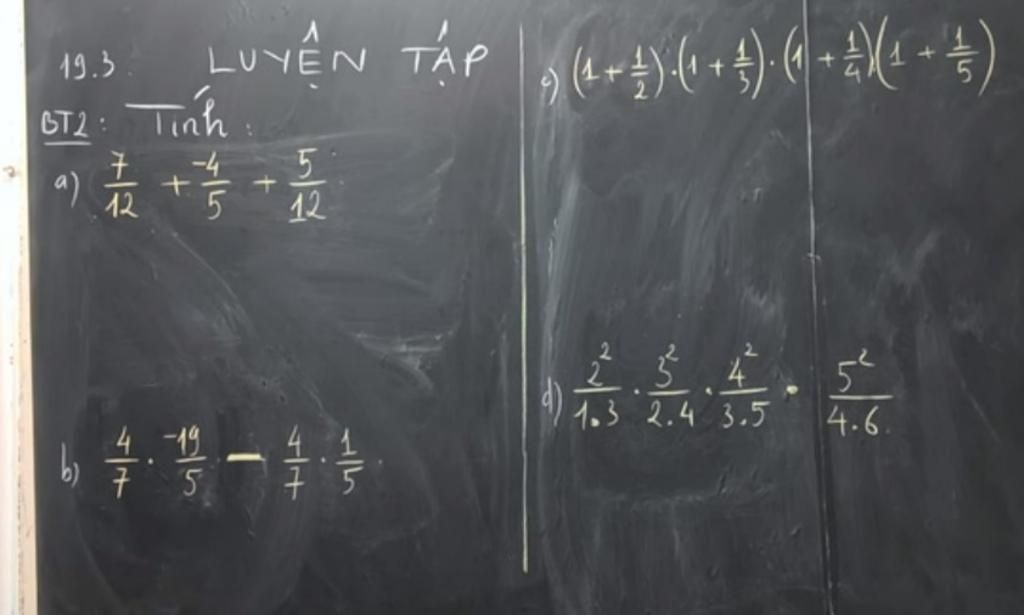 19.3. LUYỆN TẬP
BT2: Tính:
a) 7/12 + -4/5 + 5/12
b) 4/7 . -19/5 - 4/7 . 1/5
c) (1 + 1/2).(1 + 1/3).(1 + 1/4)(1 + 1/5)
d) 2²/1.3 . 3²/2.4 . 4²/3.5 . 5²/4.6